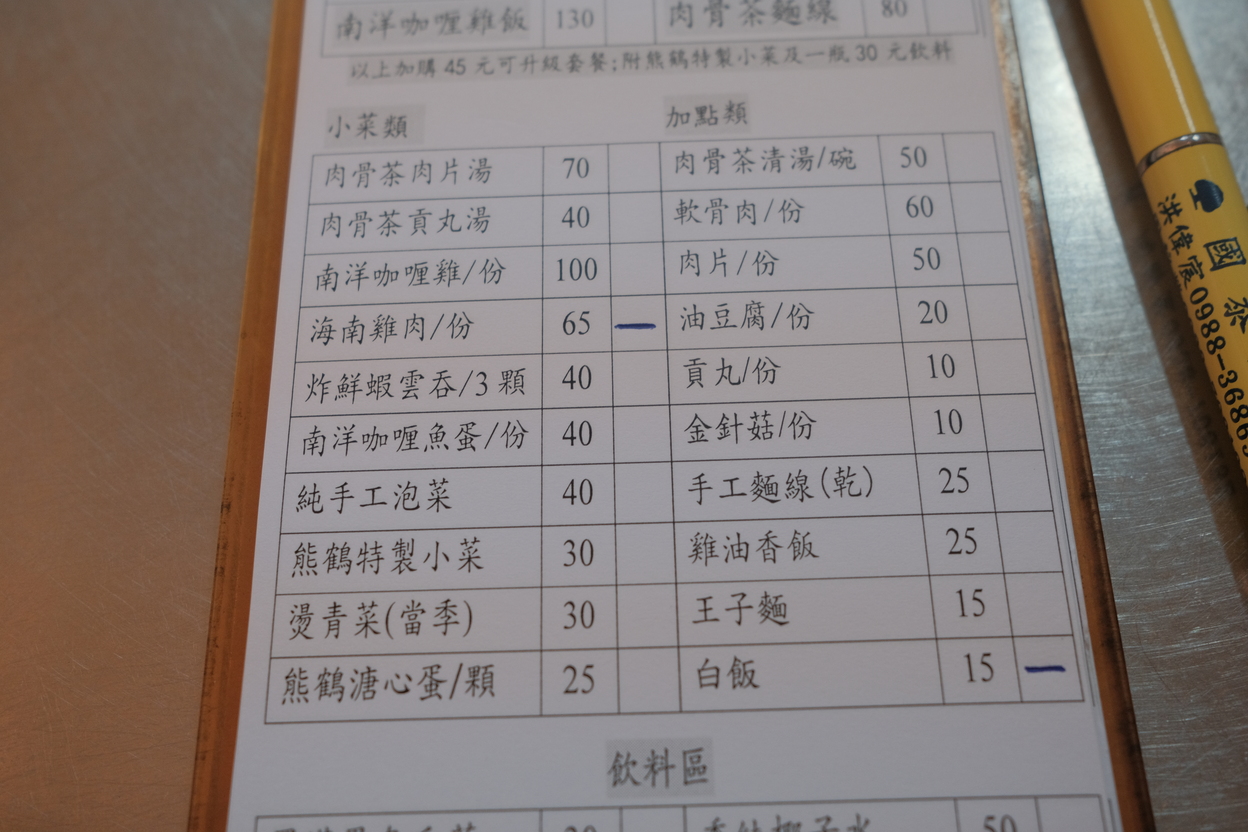 南洋咖喱雞飯 130 肉骨茶麵線 80
以上加購 45 元可升級套餐;附熊鶴特製小菜及一瓶 30 元飲料
小菜類 加點類
肉骨茶肉片湯 70 肉骨茶清湯/碗 50
肉骨茶貢丸湯 40 軟骨肉/份 60
南洋咖喱雞/份 100 肉片/份 50
海南雞肉/份 65 一 油豆腐/份 20
炸鮮蝦雲吞/3 顆 40 貢丸/份 10
南洋咖喱魚蛋/份 40 金針菇/份 10
純手工泡菜 40 手工麵線(乾) 25
熊鶴特製小菜 30 雞油香飯 25
燙青菜(當季) 30 王子麵 15
熊鶴溏心蛋/顆 25 白飯 15 一
飲料區
50
國泰
洪偉宸0988-3686